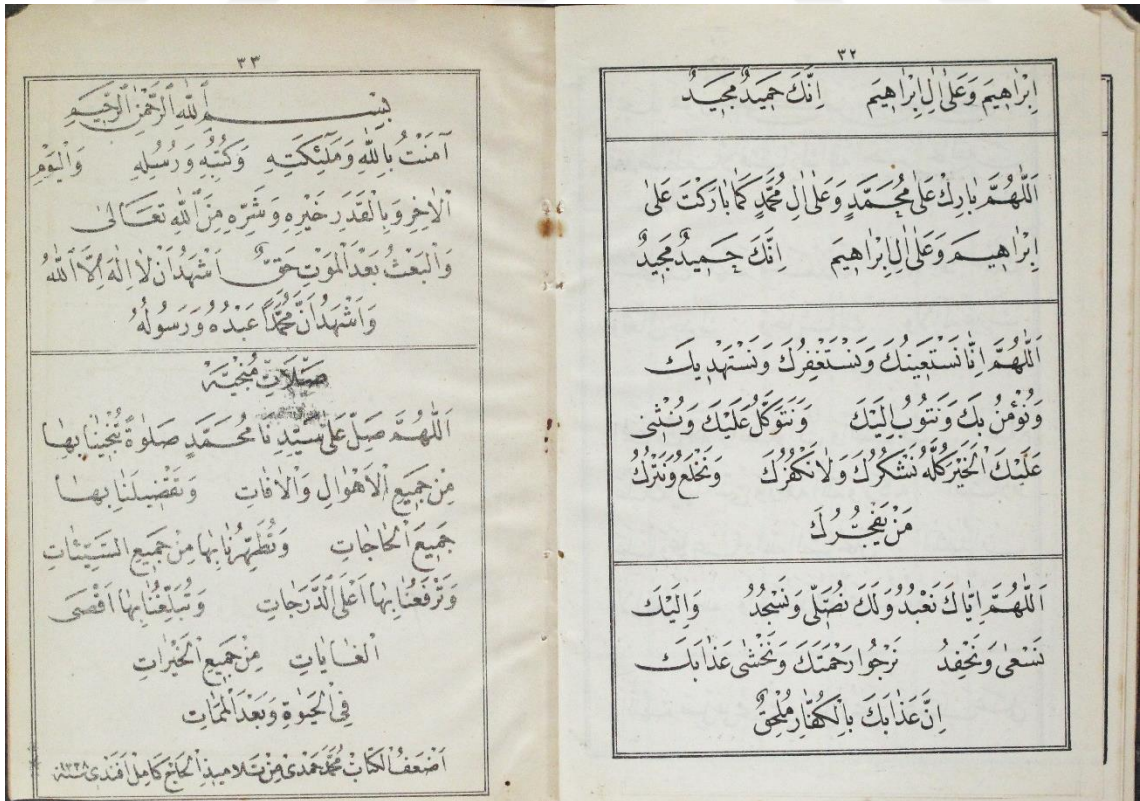 ٣٢
اِبْرَاهِيمَ وَعَلٰى اٰلِ اِبْرَاهِيمَ اِنَّكَ حَمِيدٌ مَجِيدٌ
اَللّٰهُمَّ بَارِكْ عَلٰى مُحَمَّدٍ وَعَلٰى اٰلِ مُحَمَّدٍ كَمَا بَارَكْتَ عَلٰى
اِبْرَاهِيمَ وَعَلٰى اٰلِ اِبْرَاهِيمَ اِنَّكَ حَمِيدٌ مَجِيدٌ
اَللّٰهُمَّ اِنَّا نَسْتَعِينُكَ وَنَسْتَغْفِرُكَ وَنَسْتَهْدِيكَ
وَنُؤْمِنُ بِكَ وَنَتُوبُ اِلَيْكَ وَنَتَوَكَّلُ عَلَيْكَ وَنُثْنِى
عَلَيْكَ الْخَيْرَ كُلَّهُ نَشْكُرُكَ وَلَا نَكْفُرُكَ وَنَخْلَعُ وَنَتْرُكُ
مَنْ يَفْجُرُكَ
اَللّٰهُمَّ اِيَّاكَ نَعْبُدُ وَلَكَ نُصَلِّى وَنَسْجُدُ وَاِلَيْكَ
نَسْعٰى وَنَحْفِدُ نَرْجُوا رَحْمَتَكَ وَنَخْشٰى عَذَابَكَ
اِنَّ عَذَابَكَ بِالْكُفَّارِ مُلْحِقٌ
٣٣
بِسْمِ اللّٰهِ الرَّحْمٰنِ الرَّحِيمِ
آمَنْتُ بِاللّٰهِ وَمَلٰئِكَتِهِ وَكُتُبِهِ وَرُسُلِهِ وَالْيَوْمِ
الْاٰخِرِ وَبِالْقَدَرِ خَيْرِهِ وَشَرِّهِ مِنَ اللّٰهِ تَعَالٰى
وَالْبَعْثُ بَعْدَ الْمَوْتِ حَقٌّ اَشْهَدُ اَنْ لَا اِلٰهَ اِلَّا اللّٰهُ
وَاَشْهَدُ اَنَّ مُحَمَّدًا عَبْدُهُ وَرَسُولُهُ
صَلَاتِ مُنْجِيَة
اَللّٰهُمَّ صَلِّ عَلٰى سَيِّدِنَا مُحَمَّدٍ صَلٰوةً تُنْجِينَا بِهَا
مِنْ جَمِيعِ الْاَهْوَالِ وَالْاٰفَاتِ وَتَقْضِى لَنَا بِهَا
جَمِيعَ الْحَاجَاتِ وَتُطَهِّرُنَا بِهَا مِنْ جَمِيعِ السَّيِّئَاتِ
وَتَرْفَعُنَا بِهَا اَعْلَى الدَّرَجَاتِ وَتُبَلِّغُنَا بِهَا اَقْصَى
الْغَايَاتِ مِنْ جَمِيعِ الْخَيْرَاتِ
فِى الْحَيٰوةِ وَبَعْدَ الْمَمَاتِ
اَضْعَفُ الْكُتَّابْ مُحَمَّد حَمْدِى مِنْ تَلَامِيذِ اَلْحَاجْ كَامِلْ اَفَنْدِى سنة